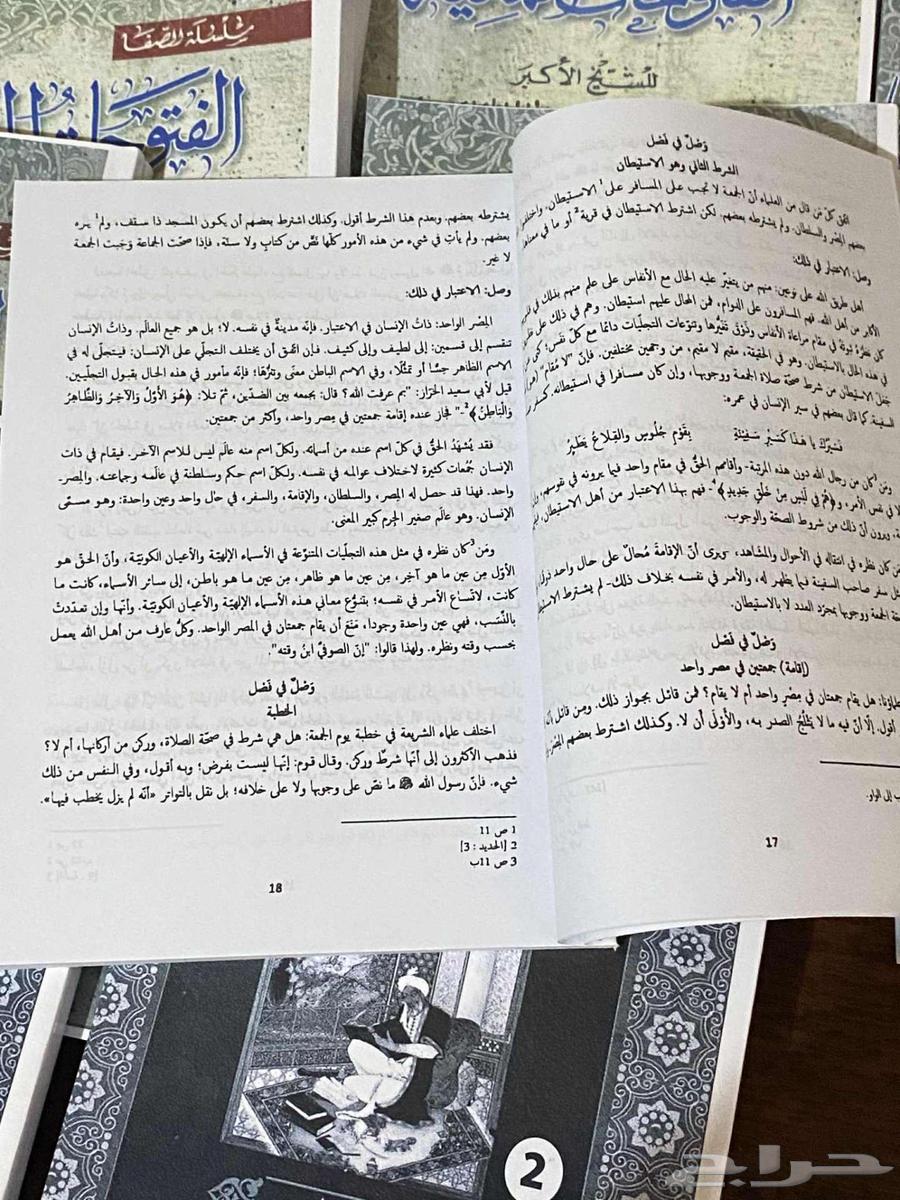 سلسلة الصفا
الفتوحات
للشيخ الأكبر
وَصْلٌ في فَصْل
الشرط الثاني وهو الاستيطان
كلّ مَن قال من العلماء أنّ الجمعة لا تجب على المسافر على الاستيطان.
بعضهم المِصْر والسلطان، ولم يشترطه بعضهم. لكن اشترط الاستيطان في قرية2 أو ما في
وصل: الاعتبار في ذلك:
أهل طريق الله على نوعين: منهم من يتغيّر عليه الحال مع الأنفاس على علم منهم بذلك في
الأكابر من أهل الله، فهم المسافرون على الدوام، فمن المحال عليهم استيطان. وهم في ذلك على
كان نظره ثبوته في مقام مراعاة الأنفاس وذَوْق تغيّرها وتنوّعات التجلّيات دائما مع كلّ نفَس؛
في هذه الحال بالاستيطان. وهو في الحقيقة، مقيم لا مقيم، من وجهين مختلفين. فإنّ "لا مُقام"
جعل الاستيطان من شرط صحّة صلاة الجمعة ووجوبها، وإن كان مسافرا في استيطانه كسفر
السفينة كما قال بعضهم في سير الإنسان في عمره:
فسَيْرُكَ يا هَذا كَسَيْرِ سَفِيْنَةٍ بِقَوْمٍ جُلُوسٍ والقِلاعُ تَطِيْرُ
ومَن كان من رجال الله دون هذه المرتبة- وأقامهم الحقّ في مقام واحد
لا في نفس الأمر، و﴿هُمْ فِي لَبْسٍ مِنْ خَلْقٍ جَدِيدٍ﴾4- فهم بهذا الاعتبار من أهل الاستيطان،
ويرون أنّ ذلك من شروط الصحّة والوجوب.
ومَن كان نظره في انتقاله في الأحوال والمشاهد، ويرى أنّ الإقامةَ مُحالٌ على حال واحد
مثل سفر صاحب السفينة فيما يظهر له، والأمر في نفسه بخلاف ذلك- لم يشترط
صحّة الجمعة ووجوبها بمجرّد العدد لا بالاستيطان.
وَصْلٌ في فَصْل
(إقامة) جمعتين في مصر واحد
هل يقام جمعتان في مِصْر واحد أم لا يقام؟ فمن قائل بجواز ذلك. ومن قائل
أقول. إلّا أنّ فيه ما لا يَثْلُجُ الصدر به، والأَوْلَى أن لا. وكذلك اشترط بعضهم
ب إلى الواو.
17
يشترطه بعضهم. وبعدم هذا الشرط أقول. وكذلك اشترط بعضهم أن يكون المسجد ذا سقف، ولم1 يره
بعضهم. ولم يأتِ في شيء من هذه الأمور كلّها نَصٌّ من كتابٍ ولا سنّة، فإذا صحّت الجماعة وَجَبت الجمعة
لا غير.
وصل: الاعتبار في ذلك:
المِصْر الواحد: ذاتُ الإنسان في الاعتبار. فإنّه مدينةٌ في نفسه. لا؛ بل هو جميع العالَم. وذاتُ الإنسان
تنقسم إلى قسمين: إلى لطيف وإلى كثيف. فإن اتّفق أن يختلف التجلّي على الإنسان: فيتجلّى له في
الاسم الظاهر حِسًّا أو تمثُّلا، وفي الاسم الباطن معنًى وتنزُّها؛ فإنّه مأمور في هذه الحال بقبول التجلّيين.
قيل لأبي سعيد الخرّاز: "بم عرفت الله؟ قال: بجمعه بين الضدّين، ثمّ تلا: ﴿هُوَ الأَوَّلُ وَالآخِرُ وَالظَّاهِرُ
وَالْبَاطِنُ﴾2-" فجاز عنده إقامة جمعتين في مِصر واحد، وأكثر من جمعتين.
فقد يُشْهَدُ الحقُّ في كلّ اسم عنده من أسمائه. ولكلّ اسم منه عالَم ليس للاسم الآخر. فيقام في ذات
الإنسان جُمُعات كثيرة لاختلاف عوالمه في نفسه. ولكلّ اسم حكم وسلطنة في عالَمه وجماعته. والمِصر-
واحد. فهذا قد حصل له المِصر، والسلطان، والإقامة، والسفر، في حال واحد وعين واحدة: وهو مسمّى
الإنسان. وهو عالَم صغير الجرم كبير المعنى.
ومَن3 كان نظره في مثل هذه التجلّيات المتنوّعة في الأسماء الإلهيّة والأعيان الكونيّة، وأنّ الحقّ هو
الأوّل مِن عين ما هو آخِر، مِن عين ما هو ظاهر، مِن عين ما هو باطن، إلى سائر الأسماء، كانت ما
كانت، لاتّساع الأمر في نفسه؛ بتنوُّع معاني هذه الأسماء الإلهيّة والأعيان الكونيّة. وأنّها وإن تعدّدتْ
بالنِّسَب، فهي عين واحدة وجودا، مَنَع أن يقام جمعتان في المصر الواحد. وكلُّ عارف من أهل الله يعمل
بحسب وقته ونظره. ولهذا قالوا: "إنّ الصوفيّ ابنُ وقته".
وَصْلٌ في فَصْل
الخطبة
اختلف علماء الشريعة في خطبة يوم الجمعة: هل هي شرط في صحّة الصلاة، وركن من أركانها، أم لا؟
فذهب الأكثرون إلى أنّها شرطٌ وركن. وقال قوم: إنّها ليست بفرض؛ وبه أقول، وفي النفس من ذلك
شيء. فإنّ رسول الله ﷺ ما نصّ على وجوبها ولا على خلافه؛ بل نقل بالتواتر «أنّه لم يزل يخطب فيها».
1 ص 11
2 [الحديد : 3]
3 ص 11ب
18
2
حراج